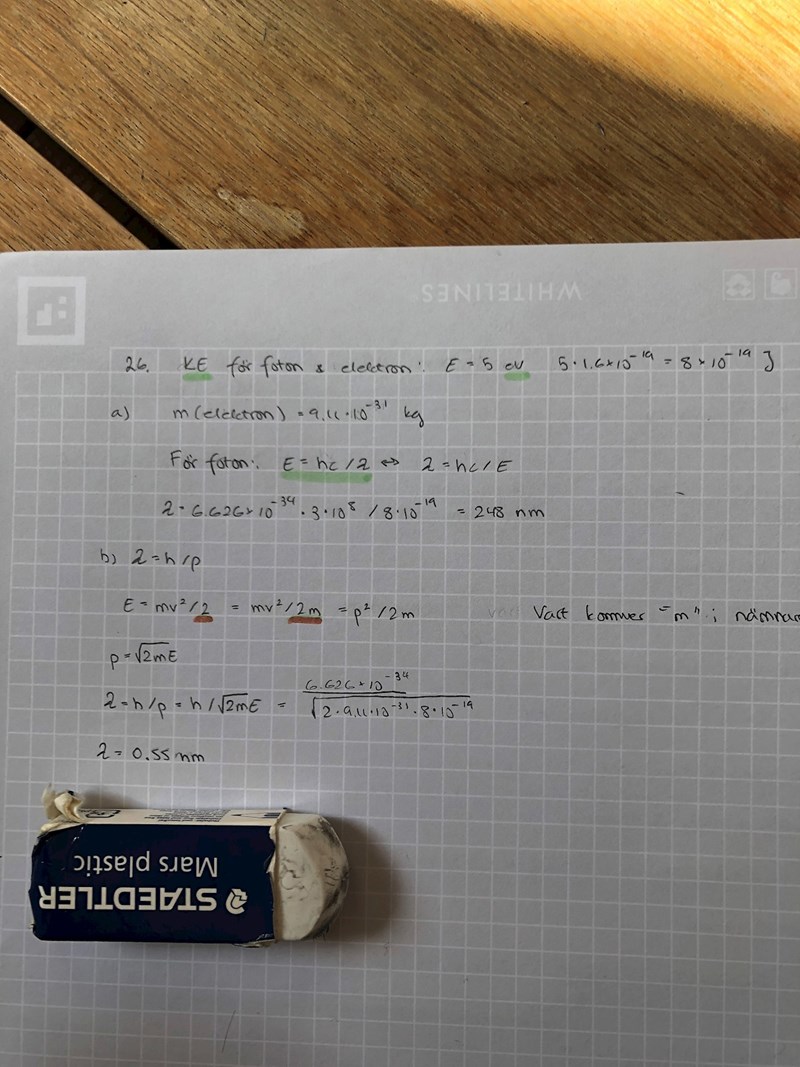 WHITELINES
26. KE för foton & elektron: E = 5 eV 5 · 1.6×10⁻¹⁹ = 8 × 10⁻¹⁹ J
a) m(elektron) = 9,11 · 10⁻³¹ kg
För foton: E = hc / λ ⇔ λ = hc / E
λ = 6.626 × 10⁻³⁴ · 3 · 10⁸ / 8 · 10⁻¹⁹ = 248 nm
b) λ = h / p
E = mv² / 2 = mv² / 2m = p² / 2m Vart kommer "m" i nämnar
p = √2mE
λ = h / p = h / √2mE = 6.626 × 10⁻³⁴ / √2 · 9,11 · 10⁻³¹ · 8 · 10⁻¹⁹
λ = 0.55 nm
STAEDTLER
Mars plastic